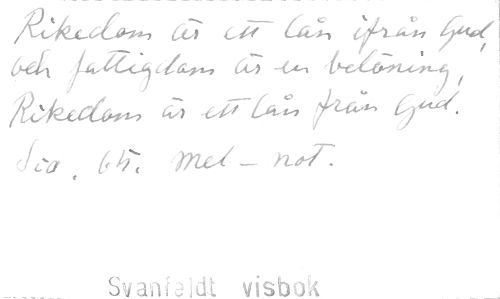 Rikedom är ett lån ifrån Gud,
och fattigdom är en belöning,
Rikedom är ett lån från Gud.
Sid. 65. mel-not.
Svanfeldt visbok